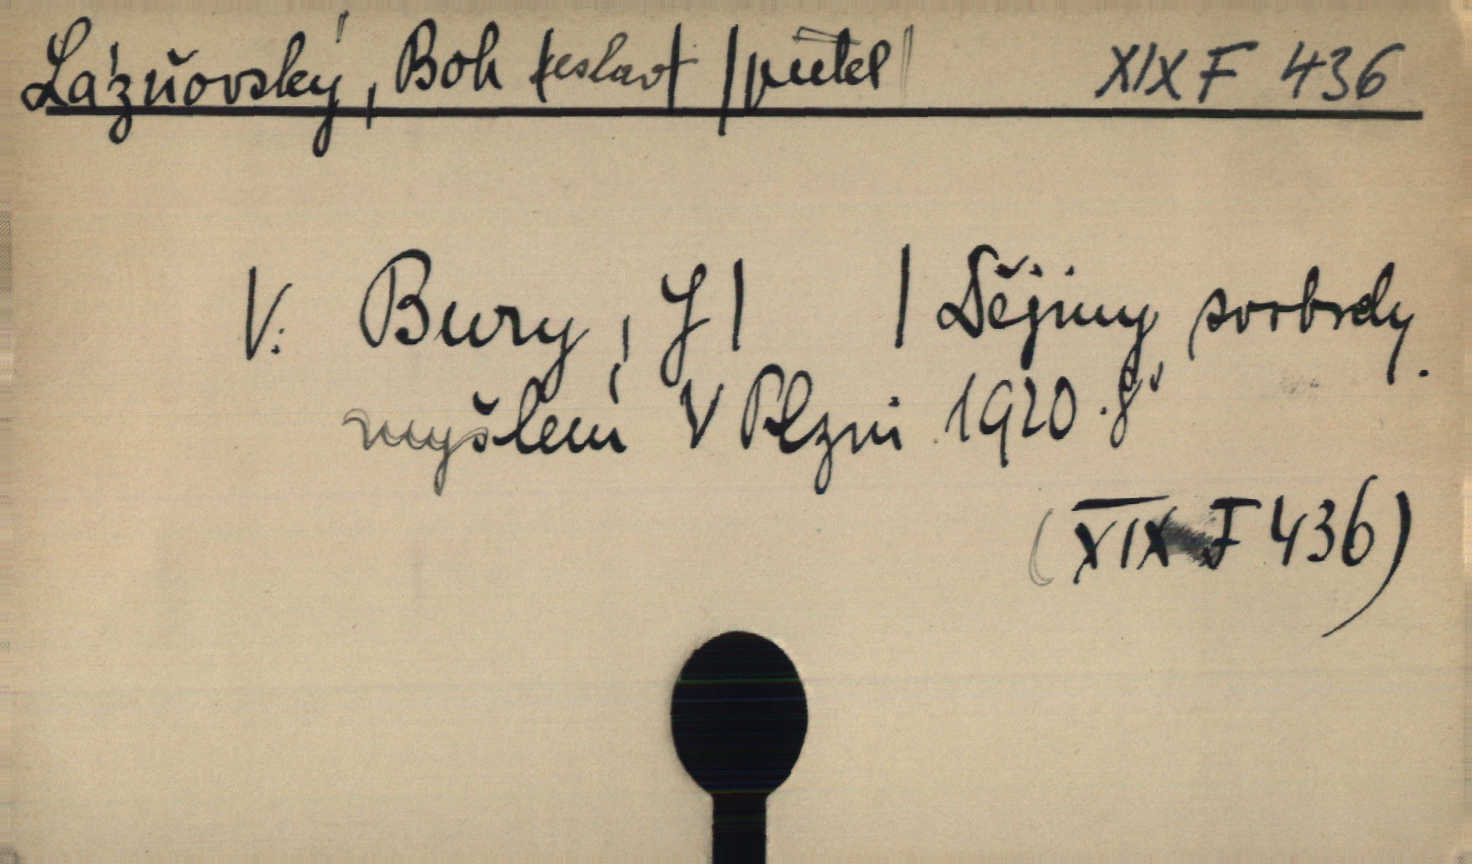 Lázňovský, Boh /uslav/ /přítel/ XIX F 436
V. Bury, J / / Dějiny svobody
myšlení V Plzni 1920. 8°
(XIX F 436)